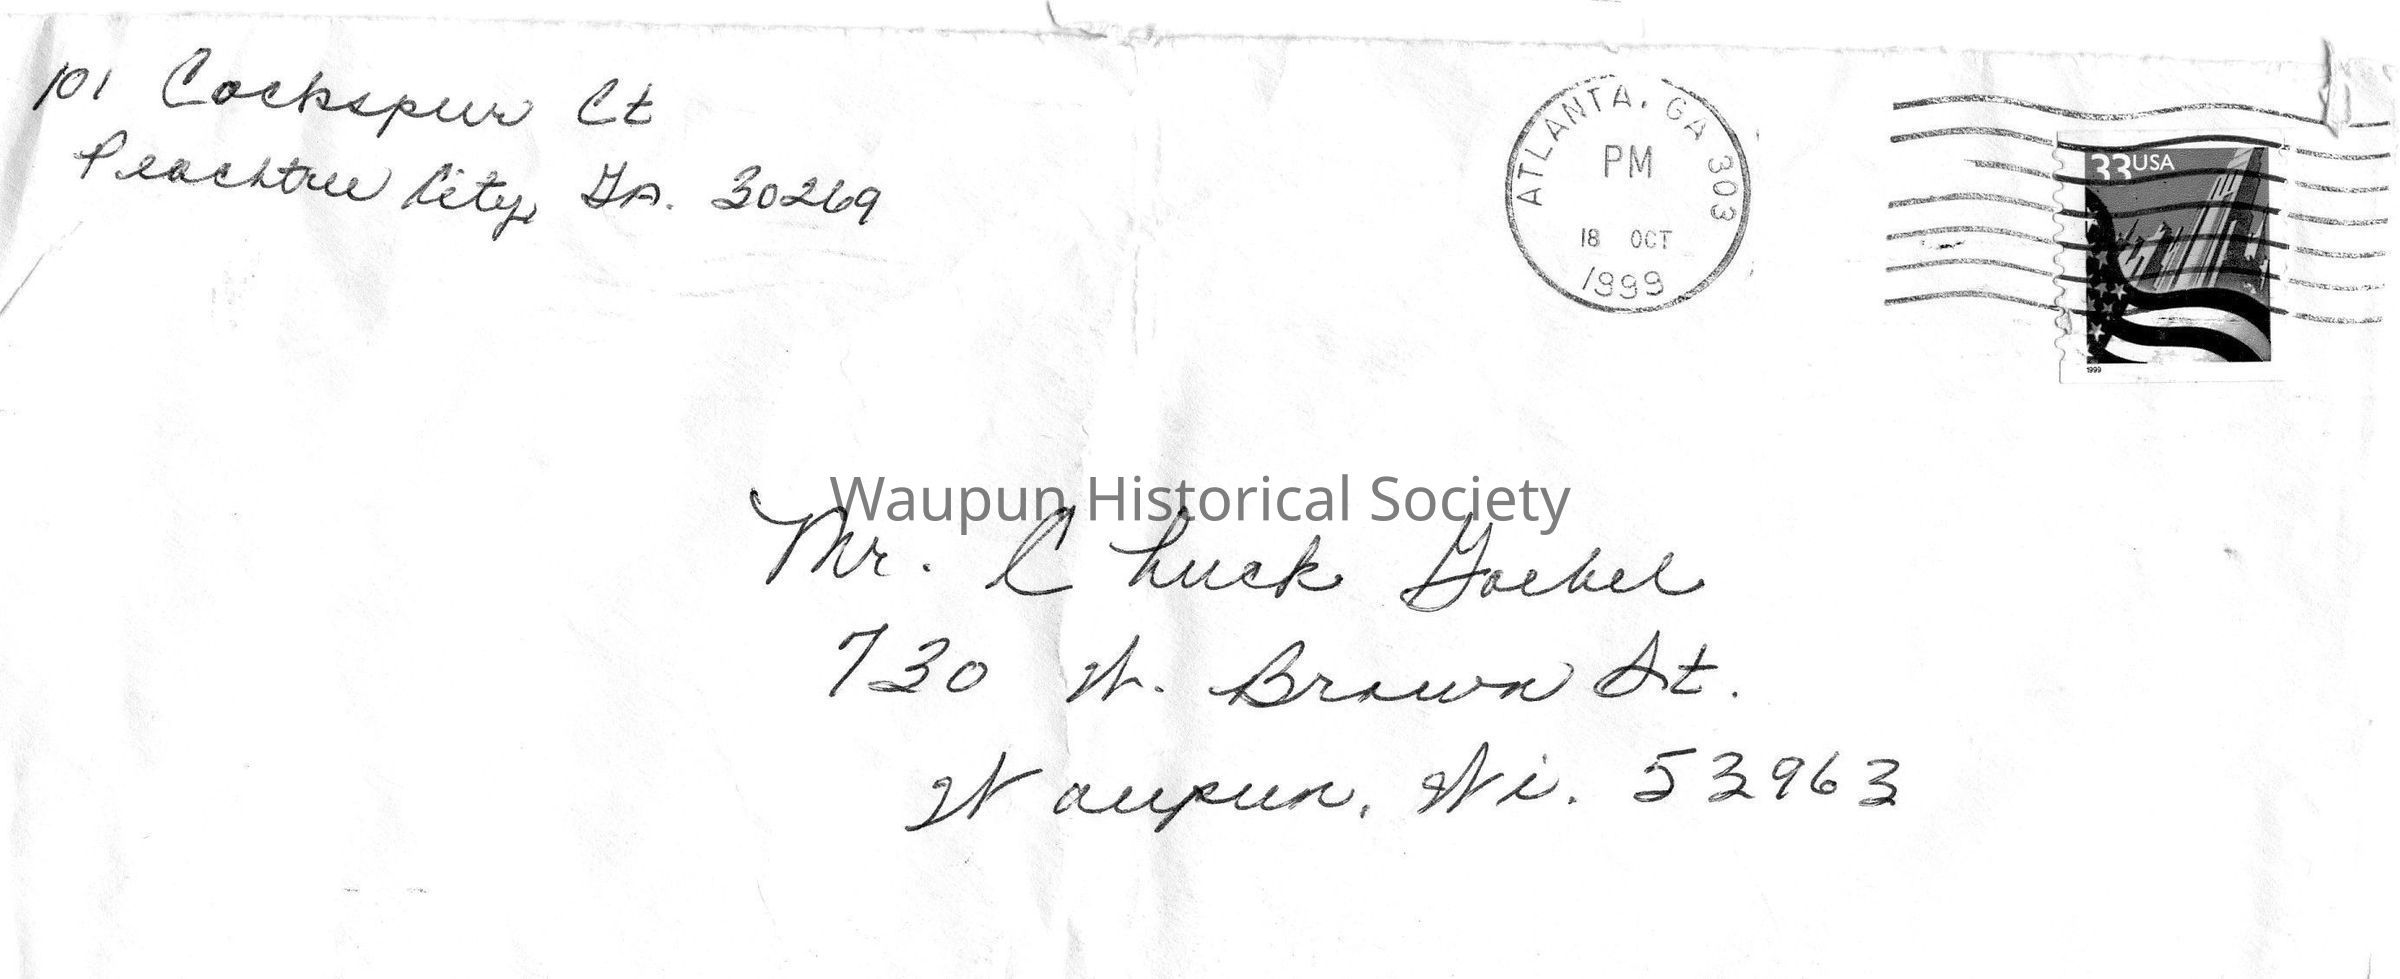 101 Cockspur Ct
Peachtree City, Ga. 30269
ATLANTA, GA 303
PM
18 OCT
1999
33USA
1999
Waupun Historical Society
Mr. Chuck Goebel
730 W. Brown St.
Waupun, Wi. 53963